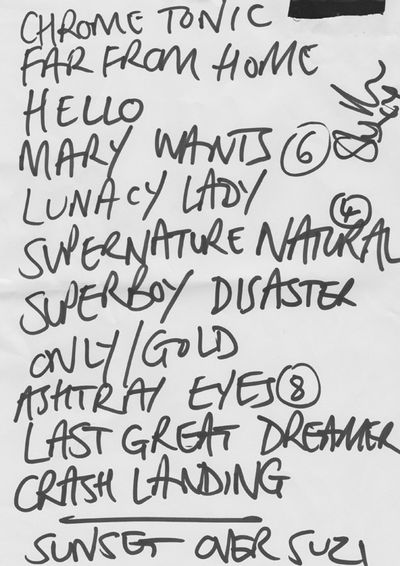 CHROME TONIC
FAR FROM HOME
HELLO
MARY WANTS 6
LUNACY LADY
4
SUPERNATURE NATURAL
SUPERBOY DISASTER
ONLY/GOLD
ASHTRAY EYES 8
LAST GREAT DREAMER
CRASH LANDING
SUNSET OVER SUZI